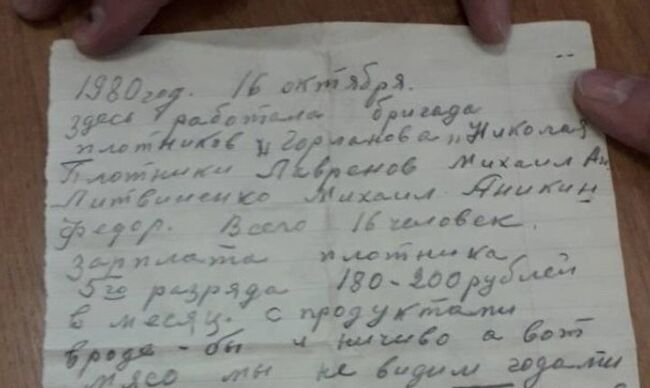 1980 год. 16 октября.
здесь работала бригада
плотников „Горланова„ Николая
Плотники Лавренов Михаил Ан.
Литвиненко Михаил Аникин
Федор. Всего 16 человек.
зарплата плотника
5го разряда 180-200 рублей
в месяц. с продуктами
вроде-бы и ничиво а вот
мясо мы не видим годами